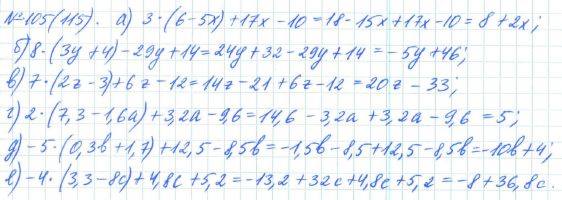 №105(115). а) 3·(6-5x)+17x-10=18-15x+17x-10=8+2x;
б) 8·(3y+4)-29y+14=24y+32-29y+14=-5y+46;
в) 7·(2z-3)+6z-12=14z-21+6z-12=20z-33;
г) 2·(7,3-1,6a)+3,2a-9,6=14,6-3,2a+3,2a-9,6=5;
д) -5·(0,3b+1,7)+12,5-8,5b=-1,5b-8,5+12,5-8,5b=-10b+4;
е) -4·(3,3-8c)+4,8c+5,2=-13,2+32c+4,8c+5,2=-8+36,8c.